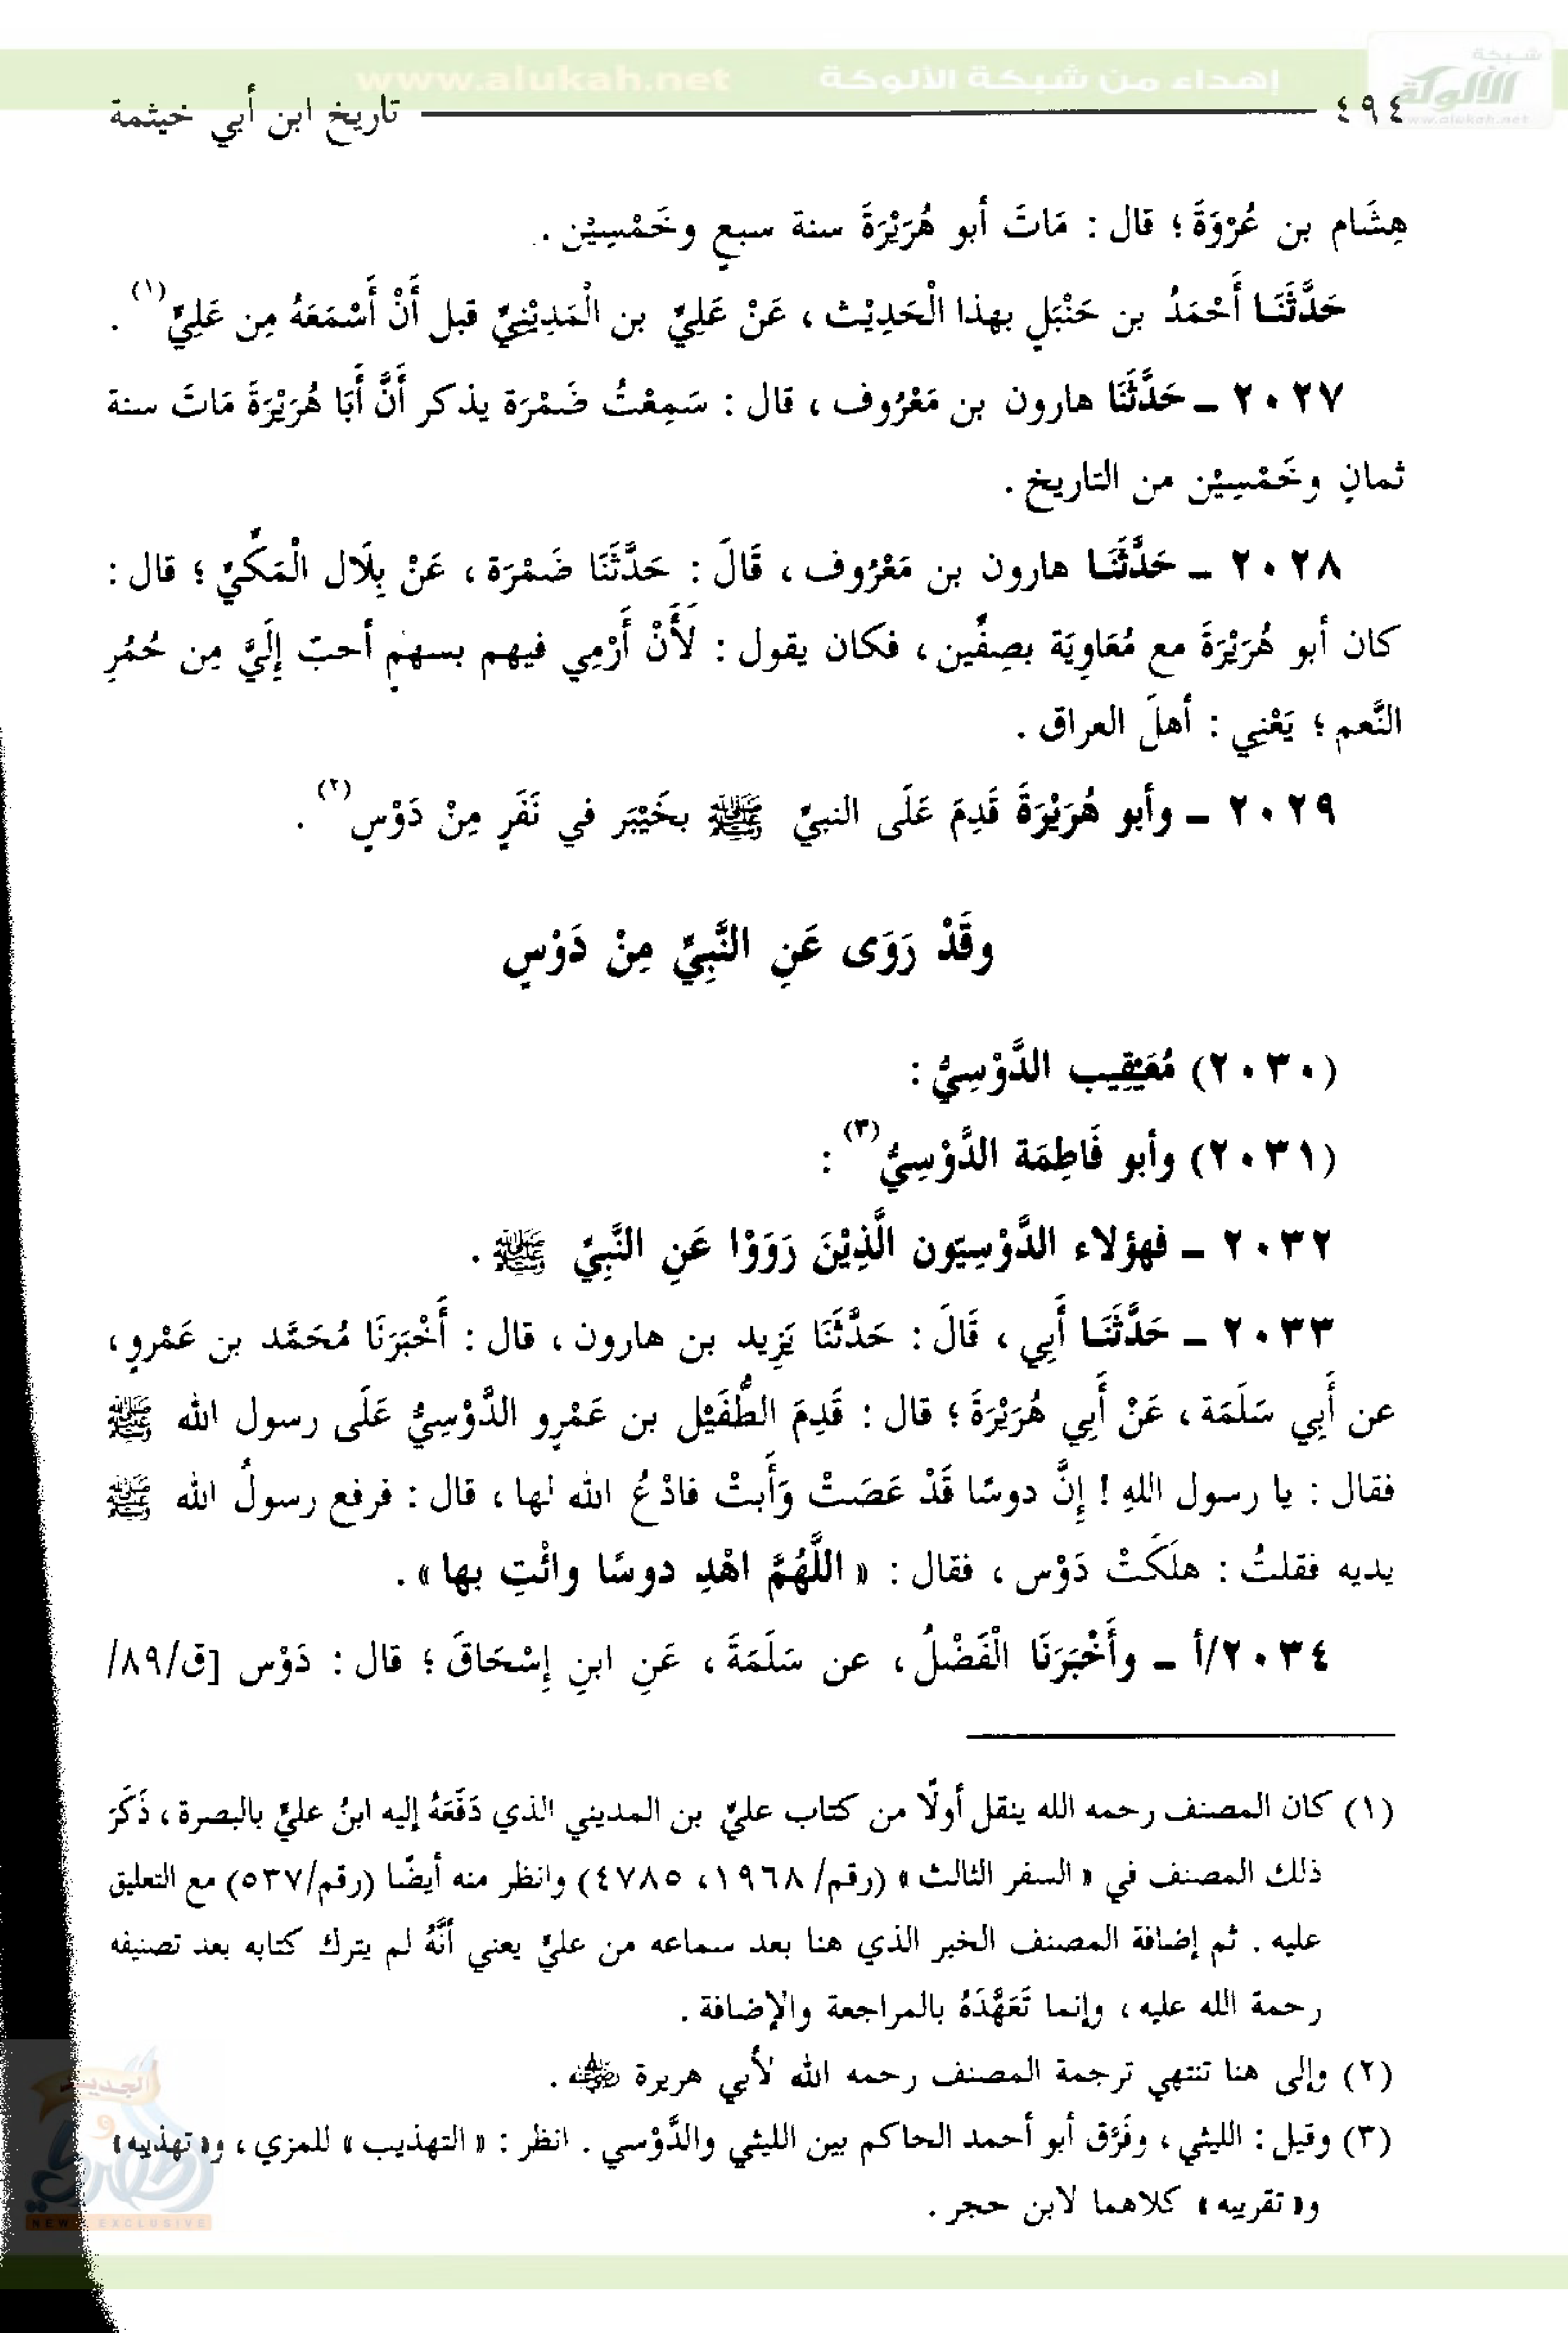 www.alukah.net إهداء من شبكة الألوكة
شبكة
الألوكة
www.alukah.net
٤٩٤ تاريخ ابن أبي خيثمة
هِشَام بن عُرْوَةَ ؛ قال : مَاتَ أبو هُرَيْرَةَ سنة سبعٍ وخَمْسِيْن .
حَدَّثَنَا أَحْمَدُ بن حَنْبَلٍ بهذا الْحَدِيْث ، عَنْ عَلِيِّ بن الْمَدِيْنِيِّ قبل أَنْ أَسْمَعَهُ مِن عَلِيٍّ(١) .
٢٠٢٧ ـ حَدَّثَنَا هارون بن مَعْرُوف ، قال : سَمِعْتُ ضَمْرَة يذكر أَنَّ أَبَا هُرَيْرَةَ مَاتَ سنة
ثمانٍ وخَمْسِيْن من التاريخ .
٢٠٢٨ ـ حَدَّثَنَا هارون بن مَعْرُوف ، قَالَ : حَدَّثَنَا ضَمْرَة ، عَنْ بِلَال الْمَكِّيِّ ؛ قال :
كان أبو هُرَيْرَةَ مع مُعَاوِيَة بصِفِّين ، فكان يقول : لَأَنْ أَرْمِي فيهم بسهمٍ أحبّ إِلَيَّ مِن حُمُرِ
النَّعم ؛ يَعْنِي : أهلَ العراق .
٢٠٢٩ ـ وأبو هُرَيْرَةَ قَدِمَ عَلَى النبيِّ ﷺ بخَيْبَر في نَفَرٍ مِنْ دَوْسٍ(٢) .
وقَدْ رَوَى عَنِ النَّبِيِّ مِنْ دَوْسٍ
(٢٠٣٠) مُعَيْقِيب الدَّوْسِيُّ :
(٢٠٣١) وأبو فَاطِمَة الدَّوْسِيُّ(٣) :
٢٠٣٢ ـ فهؤلاء الدَّوْسِيّون الَّذِيْنَ رَوَوْا عَنِ النَّبِيِّ ﷺ .
٢٠٣٣ ـ حَدَّثَنَا أَبِي ، قَالَ : حَدَّثَنَا يَزِيد بن هارون ، قال : أَخْبَرَنَا مُحَمَّد بن عَمْرٍو ،
عن أَبِي سَلَمَة ، عَنْ أَبِي هُرَيْرَةَ ؛ قال : قَدِمَ الطُّفَيْل بن عَمْرٍو الدَّوْسِيُّ عَلَى رسول الله ﷺ
فقال : يا رسول اللهِ ! إِنَّ دوسًا قَدْ عَصَتْ وَأَبتْ فادْعُ الله لها ، قال : فرفع رسولُ الله ﷺ
يديه فقلتُ : هلَكَتْ دَوْس ، فقال : « اللَّهُمَّ اهْدِ دوسًا وائْتِ بها » .
٢٠٣٤/أ ـ وأَخْبَرَنَا الْفَضْلُ ، عن سَلَمَةَ ، عَنِ ابنِ إِسْحَاقَ ؛ قال : دَوْس [ق/٨٩/
(١) كان المصنف رحمه الله ينقل أولًا من كتاب عليِّ بن المديني الذي دَفَعَهُ إليه ابنُ عليٍّ بالبصرة ، ذَكَرَ
ذلك المصنف في « السفر الثالث » (رقم/ ١٩٦٨ ، ٤٧٨٥) وانظر منه أيضًا (رقم/٥٣٧) مع التعليق
عليه . ثم إضافة المصنف الخبر الذي هنا بعد سماعه من عليٍّ يعني أَنَّهُ لم يترك كتابه بعد تصنيفه
رحمة الله عليه ، وإنما تَعَهَّدَهُ بالمراجعة والإضافة .
(٢) وإلى هنا تنتهي ترجمة المصنف رحمه الله لأبي هريرة رضي الله عنه .
(٣) وقيل : الليثي ، وفَرَّق أبو أحمد الحاكم بين الليثي والدَّوْسي . انظر : « التهذيب » للمزي ، و« تهذيبه »
و« تقريبه » كلاهما لابن حجر .
الجديد
و
NEW & EXCLUSIVE